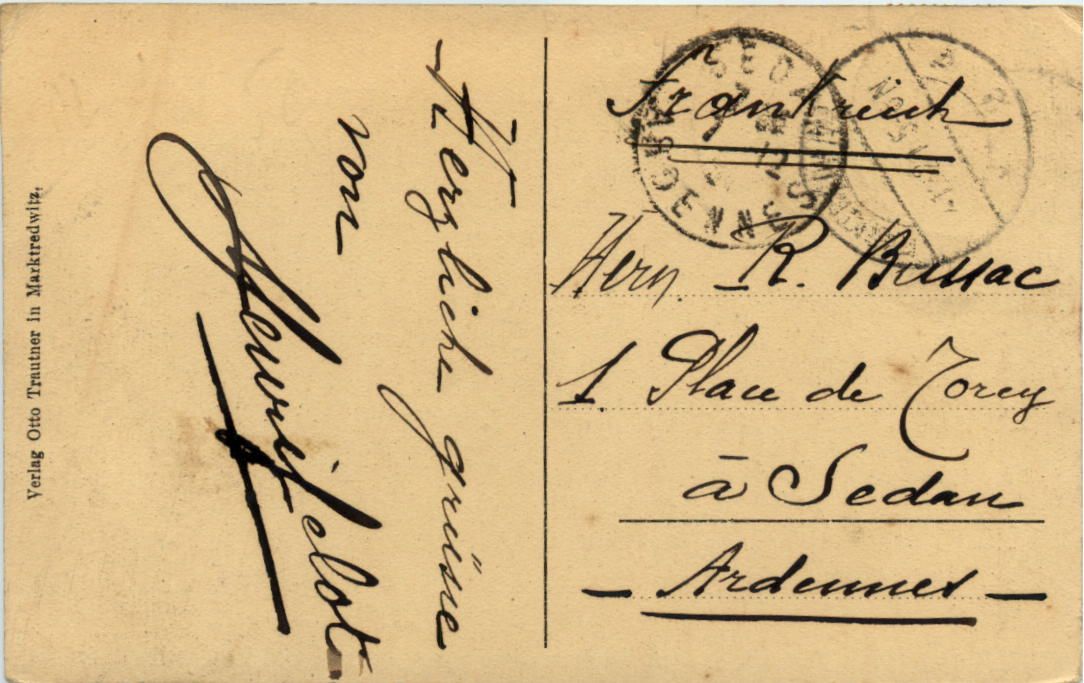 Herzliche grüsse
von
Frankreich
Herrn R. Bussac
1 Place de Torcy
à Sedan
Ardennes
Verlag Otto Trautner in Marktredwitz.
SEDAN
ARDENNES